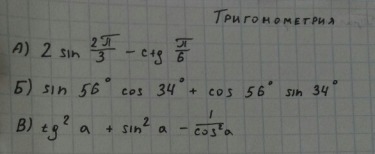 Тригонометрия
А) 2 sin 2π/3 − ctg π/6
Б) sin 56° cos 34° + cos 56° sin 34°
В) tg² a + sin² a − 1/cos² a